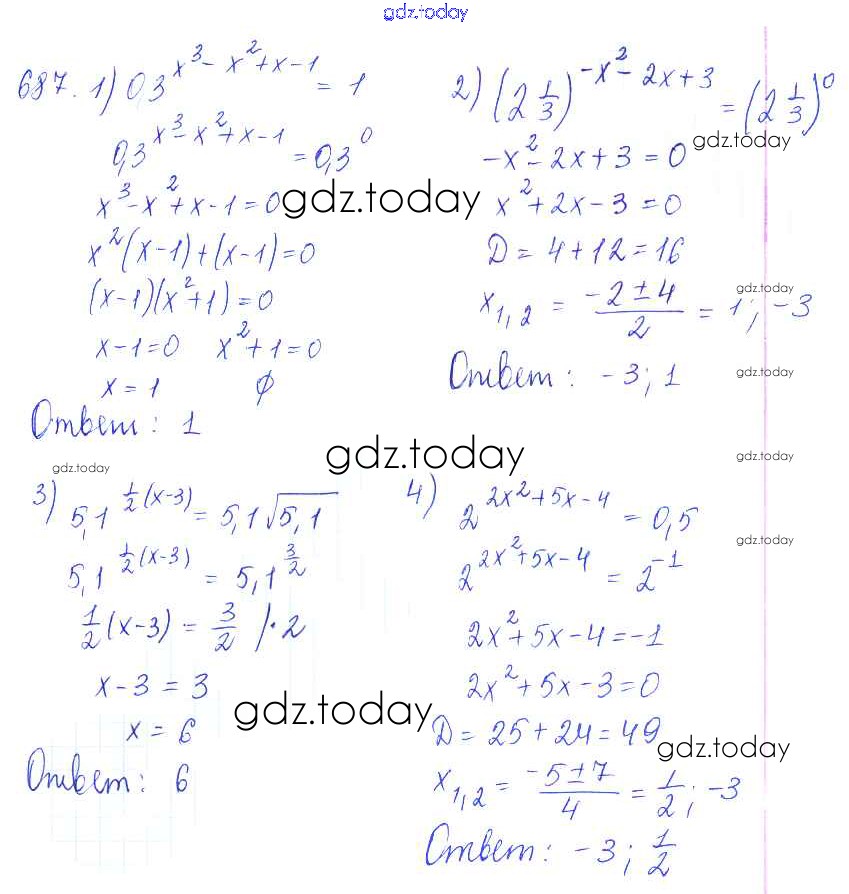 gdz.today
687. 1) 0,3^(x³ - x² + x - 1) = 1
0,3^(x³ - x² + x - 1) = 0,3⁰
x³ - x² + x - 1 = 0
x²(x - 1) + (x - 1) = 0
(x - 1)(x² + 1) = 0
x - 1 = 0   x² + 1 = 0
x = 1   ∅
Ответ: 1
2) (2 1/3)^(-x² - 2x + 3) = (2 1/3)⁰
gdz.today
-x² - 2x + 3 = 0
gdz.today
x² + 2x - 3 = 0
D = 4 + 12 = 16
gdz.today
x₁,₂ = (-2 ± 4)/2 = 1; -3
Ответ: -3; 1
gdz.today
gdz.today
gdz.today
gdz.today
3) 5,1^(1/2(x-3)) = 5,1√5,1
5,1^(1/2(x-3)) = 5,1^(3/2)
1/2(x-3) = 3/2 /·2
x - 3 = 3
x = 6
gdz.today
Ответ: 6
4) 2^(2x² + 5x - 4) = 0,5
gdz.today
2^(2x² + 5x - 4) = 2⁻¹
2x² + 5x - 4 = -1
2x² + 5x - 3 = 0
D = 25 + 24 = 49
gdz.today
x₁,₂ = (-5 ± 7)/4 = 1/2; -3
Ответ: -3; 1/2